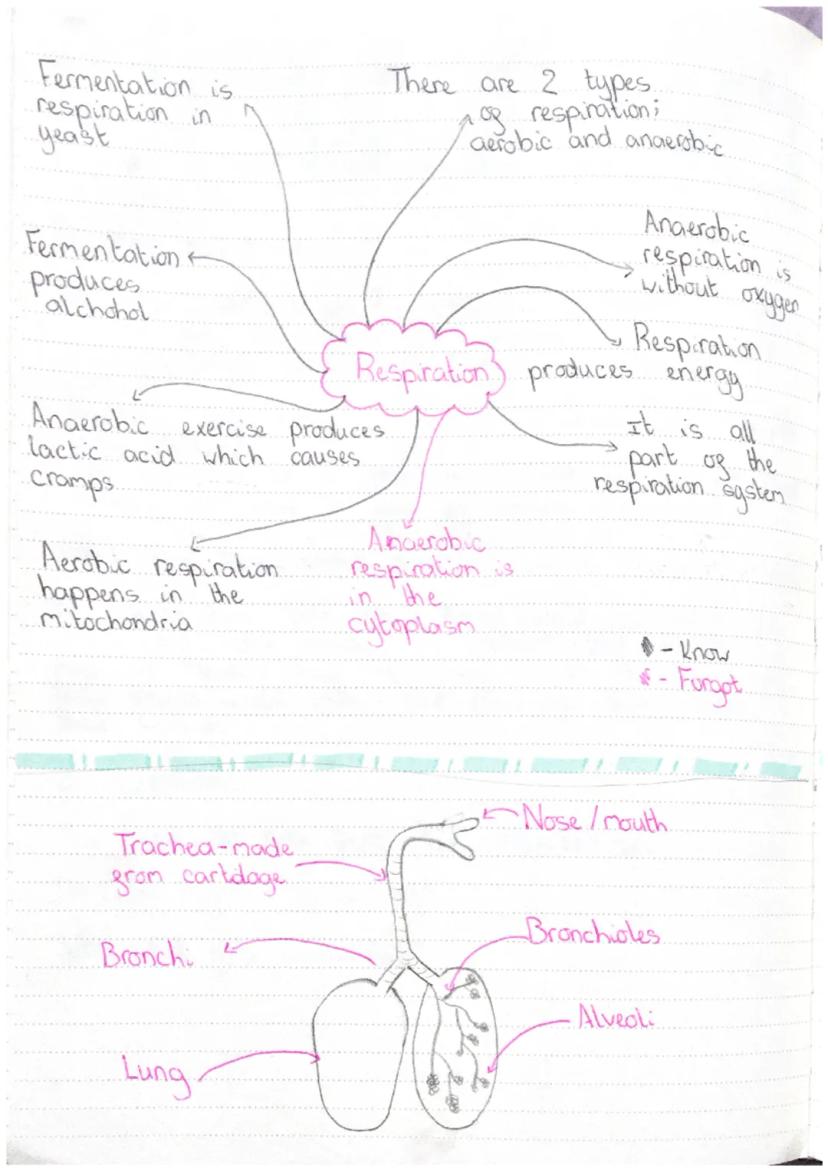 Fermentation is
respiration in
yeast
There are 2 types
of respiration;
aerobic and anaerobic
Anaerobic
respiration is
without oxygen
Fermentation
produces
alchohol
Respiration
Respiration
produces energy
Anaerobic exercise produces
lactic acid which causes
cramps
It is all
part of the
respiration system
Aerobic respiration
happens in the
mitochondria
Anaerobic
respiration is
in the
cytoplasm
- Know
- Forgot
Nose / mouth
Trachea-made
from cartilage
Bronchi
Bronchioles
Alveoli
Lung